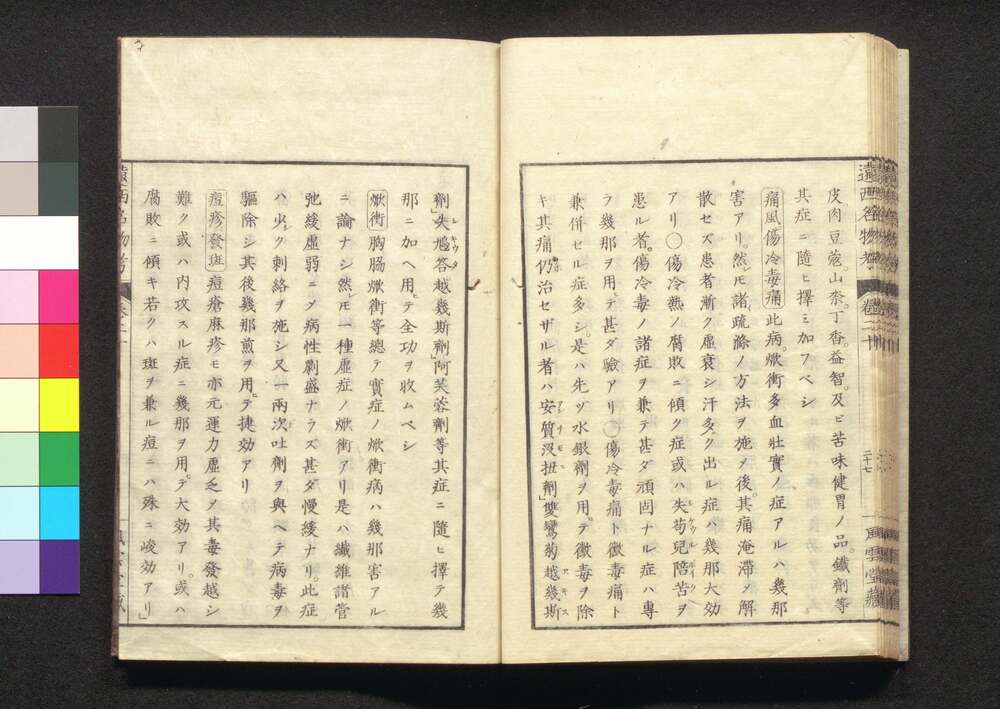 遠西名物考 卷二十 二十七 風雲堂藏
皮肉豆蔲。山柰。丁香。益智。及ビ苦味健胃ノ品。鐵劑等
其症ニ隨ヒ擇ミ加フベシ
痛風傷冷毒痛 此病。焮衝多血壯實ノ症アルハ幾那
害アリ。然レモ諸疏滌ノ方法ヲ施メ後。其痛淹滯メ解
散セズ患者漸ク虛衰シ汗多ク出ル症ハ幾那大効
アリ○傷冷熱ノ腐敗ニ傾ク症或ハ失苟兒陪苦ヲ
患ル者。傷冷毒ノ諸症ヲ兼テ甚ダ頑固ナル症ハ專
ラ幾那ヲ用テ甚ダ驗アリ○傷冷毒痛ト黴毒痛ト
兼併セル症多シ。是ハ先ヅ水銀劑ヲ用テ黴毒ヲ除
キ其痛仍治セザル者ハ安質沒扭劑」雙鸞菊越幾斯
劑」失鳩答越幾斯劑」阿芙蓉劑等其症ニ隨ヒ擇テ幾
那ニ加ヘ用テ全功ヲ收ムベシ
焮衝 胸膓焮衝等總テ實症ノ焮衝病ハ幾那害アル
ニ論ナシ然レモ一種虛症ノ焮衝アリ是ハ纎維諸管
弛緩虛弱ニメ病性劇盛ナラズ甚ダ慢緩ナリ。此症
ハ少シク刺絡ヲ施シ又一兩次吐劑ヲ與ヘテ病毒ヲ
驅除シ其後幾那煎ヲ用テ捷効アリ
痘疹發斑 痘瘡麻疹モ亦元運力虛乏メ其毒發越シ
難ク或ハ内攻スル症ニ幾那ヲ用テ大効アリ。或ハ
腐敗ニ傾キ若クハ斑ヲ兼ル痘ニハ殊ニ峻効アリ」
遠西名物考